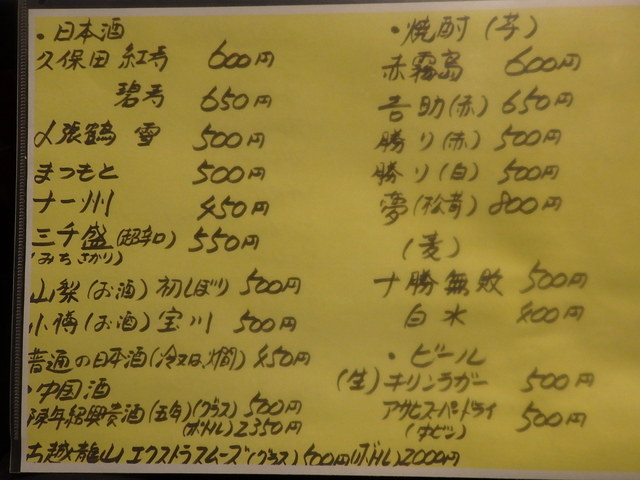 ・日本酒
久保田 紅寿 600円
碧寿 650円
〆張鶴 雪 500円
まつもと 500円
十一州 450円
三千盛(超辛口) 550円
(みちさかり)
山梨(お酒)初しぼり 500円
小樽(お酒)宝川 500円
普通の日本酒(冷又は、燗) 450円
・中国酒
陳年紹興貴酒(五年)(グラス) 500円
(ボトル) 2350円
古越龍山 エクストラスムーズ(グラス) 500円(ボトル)2000円
・焼酎(芋)
赤霧島 600円
吉助(赤) 650円
勝り(赤) 500円
勝り(白) 500円
夢(松茸) 800円
(麦)
十勝無敗 500円
白水 400円
・ビール
(生)キリンラガー 500円
アサヒスーパードライ 500円
(中ビン)